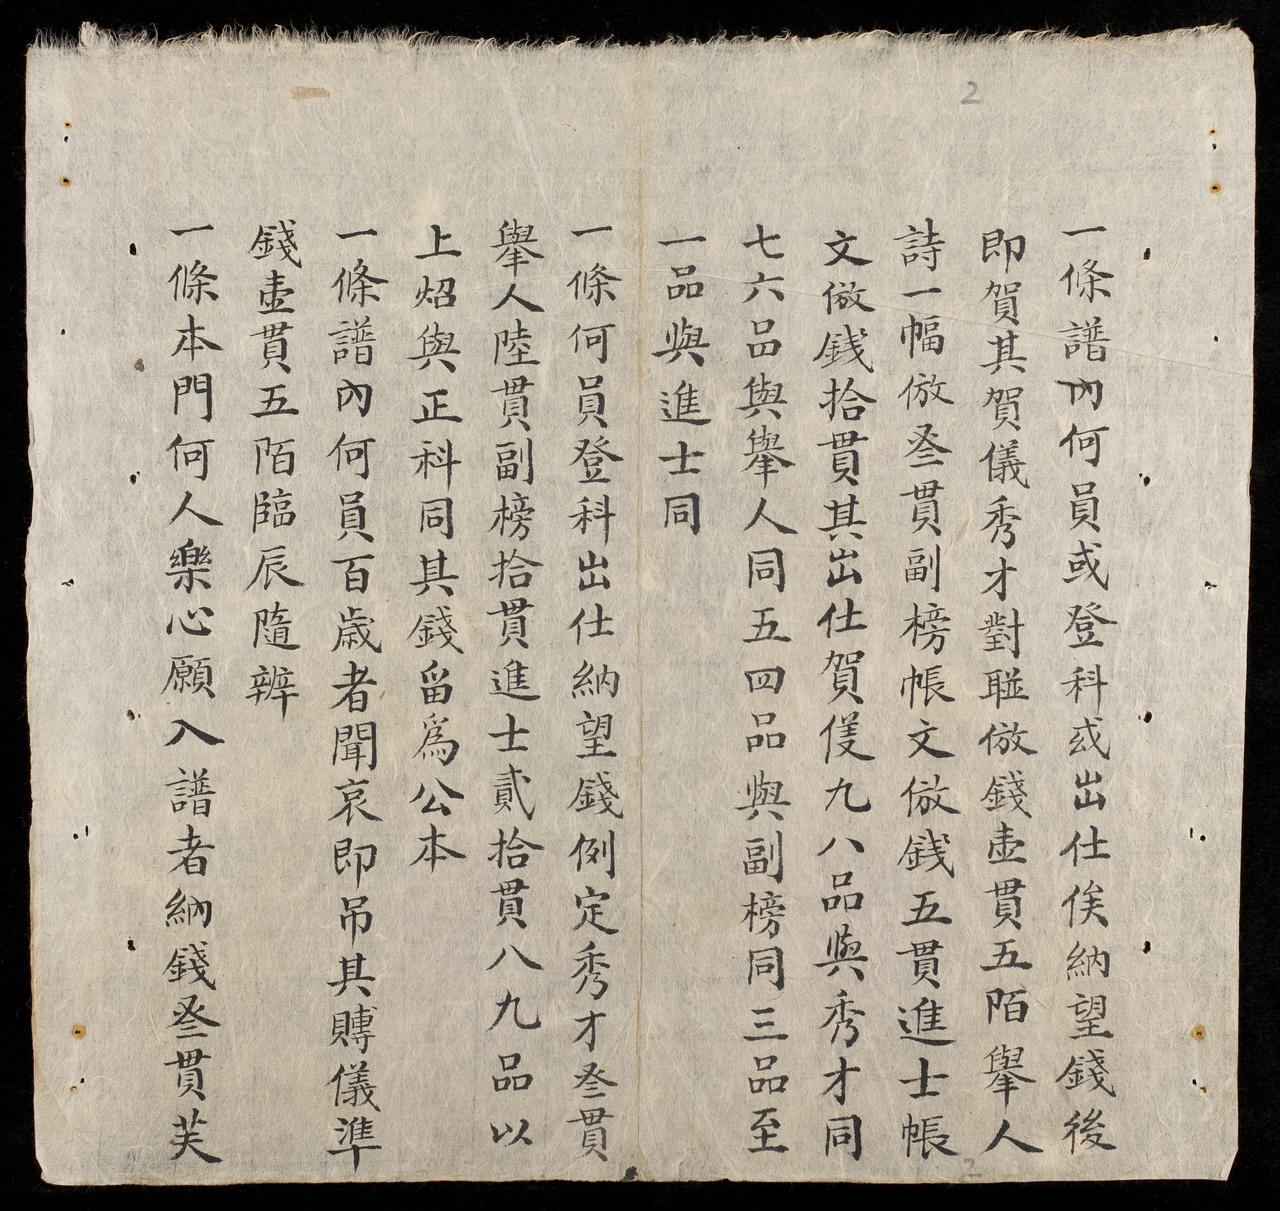 2
一條譜內何員或登科或出仕俟納望錢後
即賀其賀儀秀才對聯倣錢壹貫五陌舉人
詩一幅倣叄貫副榜帳文倣錢五貫進士帳
文倣錢拾貫其出仕賀儀九八品與秀才同
七六品與舉人同五四品與副榜同三品至
一品與進士同
一條何員登科出仕納望錢例定秀才叄貫
舉人陸貫副榜拾貫進士貳拾貫八九品以
上炤與正科同其錢留爲公本
一條譜內何員百歲者聞哀即吊其賻儀準
錢壹貫五陌臨辰隨辨
一條本門何人樂心願入譜者納錢叄貫芙
2